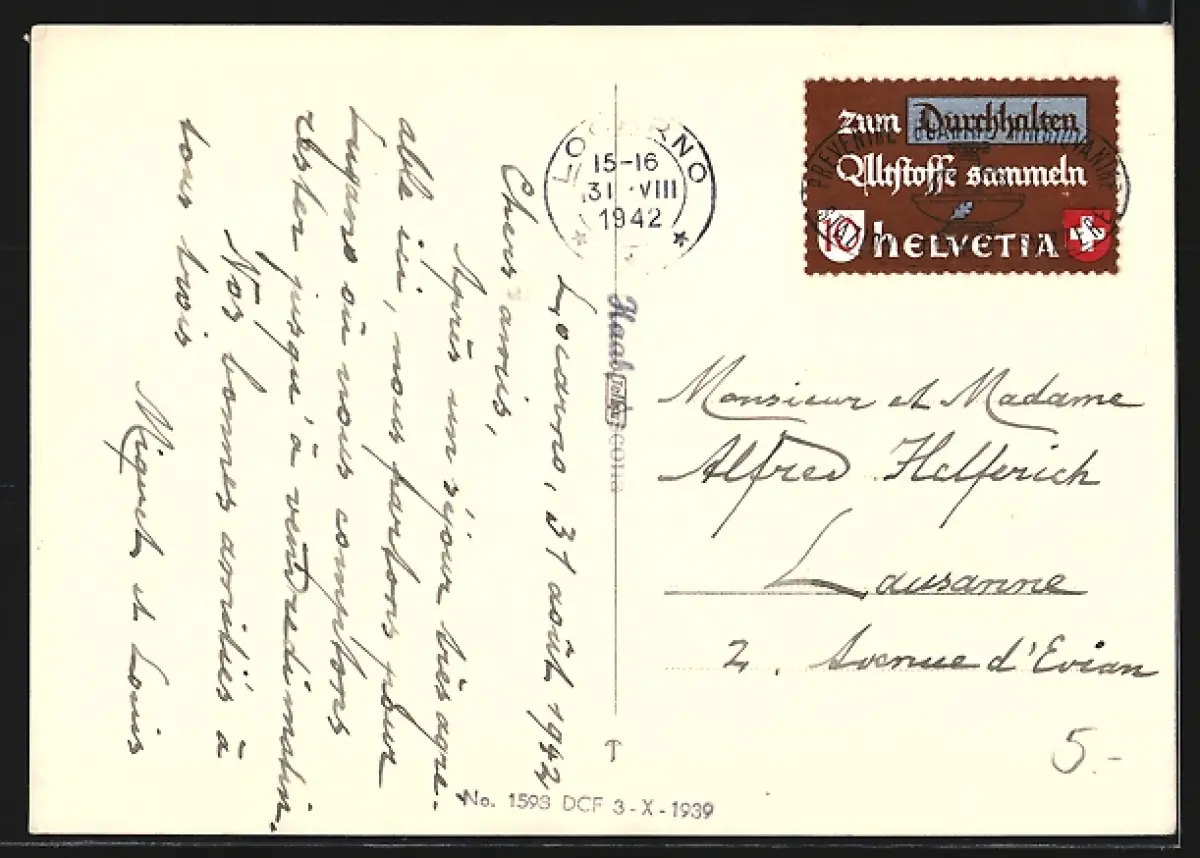 LOCARNO
15-16
31.VIII
1942
zum Durchhalten
Altstoffe sammeln
10 HELVETIA
Locarno, 31 août 1942
Chers amis,
Après un séjour très agré-
able ici, nous partons pour
Lugano où nous comptons
rester jusqu'à vendredi matin.
Nos bonnes amitiés à
tous trois
et Louis
Monsieur et Madame
Alfred Helferich
Lausanne
2. Avenue d'Evian
5.-
No. 1598 DCF 3-X-1939